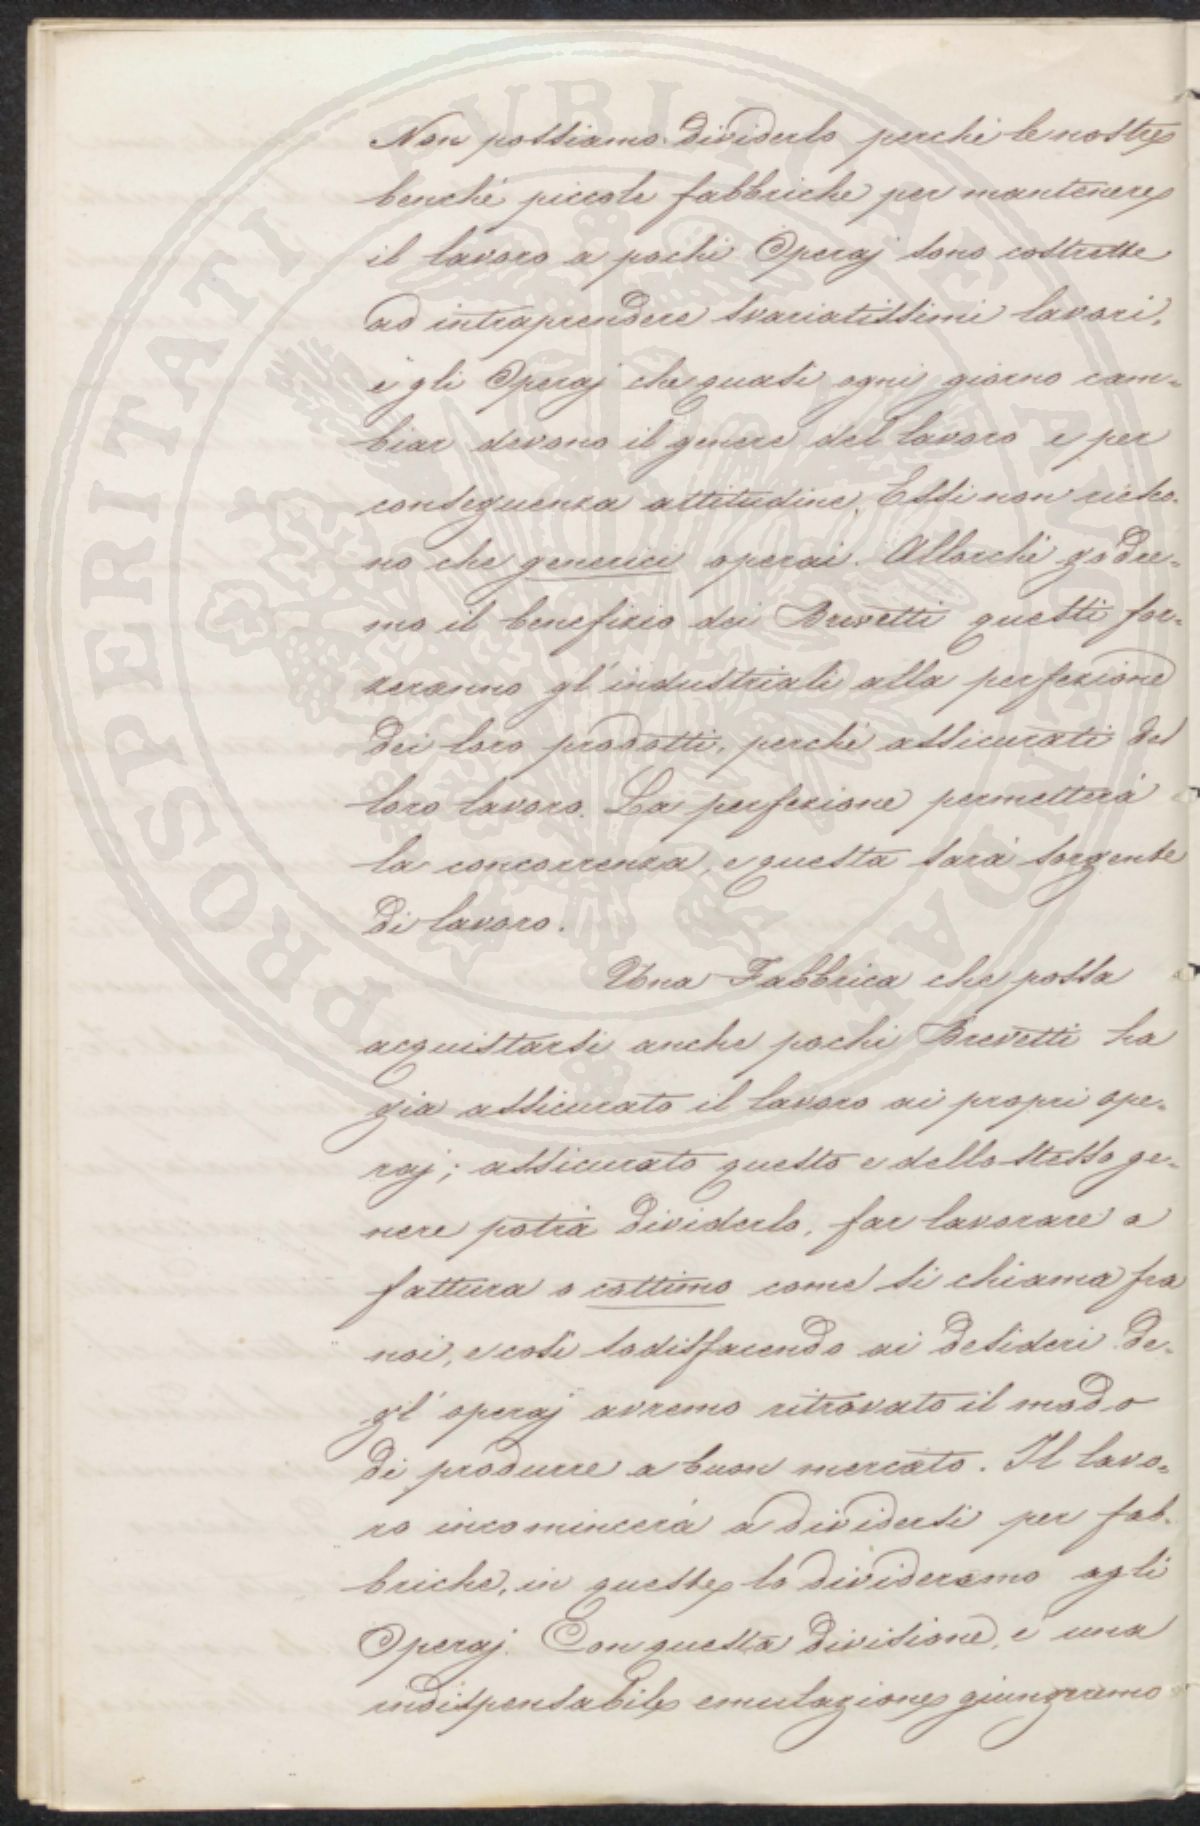 Non possiamo dividerlo perché le nostre
benché piccole fabbriche per mantenere
il lavoro a pochi Operaj sono costrette
ad intraprendere svariatissimi lavori,
e gli Operaj che quasi ogni giorno cam=
biar devono il genere del lavoro e per
conseguenza attitudine. Essi non riesco=
no che generici operai. Allorché godre=
mo il benefizio dei Brevetti questi for=
zeranno gl'industriali alla perfezione
dei loro prodotti, perché assicurati del
loro lavoro. La perfezione permetterà
la concorrenza, e questa sarà sorgente
di lavoro.
Una Fabbrica che possa
acquistarsi anche pochi Brevetti ha
gia assicurato il lavoro ai propri ope=
raj; assicurato questo e dello stesso ge=
nere potrà dividerlo, far lavorare a
fattura o cottimo come si chiama fra
noi, e così sodisfacendo ai desideri de=
gl'operaj avremo ritrovato il modo
di produrre a buon mercato. Il lavo=
ro incomincerà a dividersi per fab=
briche, in queste lo divideremo agli
Operaj. Con questa divisione, e una
indispensabile emulazione giungeremo
PROSPERITATI PUBLICAE AUGENDAE